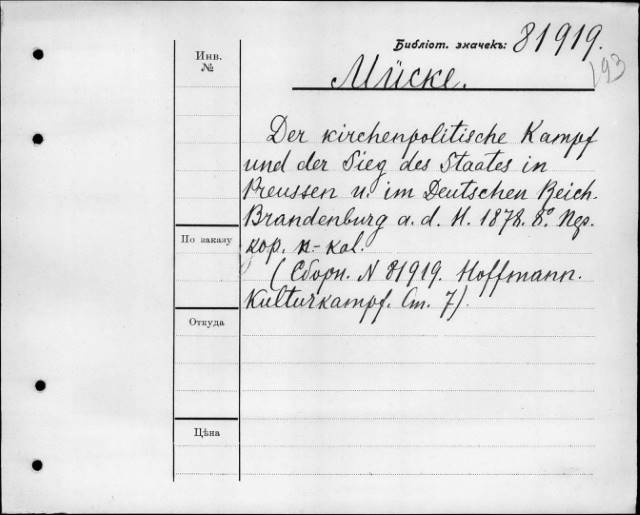 Библіот. значекъ: 81919.
193
Инв. №
Мüске.
Der kirchenpolitische Kampf
und der Sieg des Staates in
Preussen u. im Deutschen Reich.
Brandenburg a. d. H. 1878. 8° Пер.
кор. к-кал.
(Сборн. N 81919. Hoffmann.
Kulturkampf. Ст. 7).
По заказу
Откуда
Цѣна